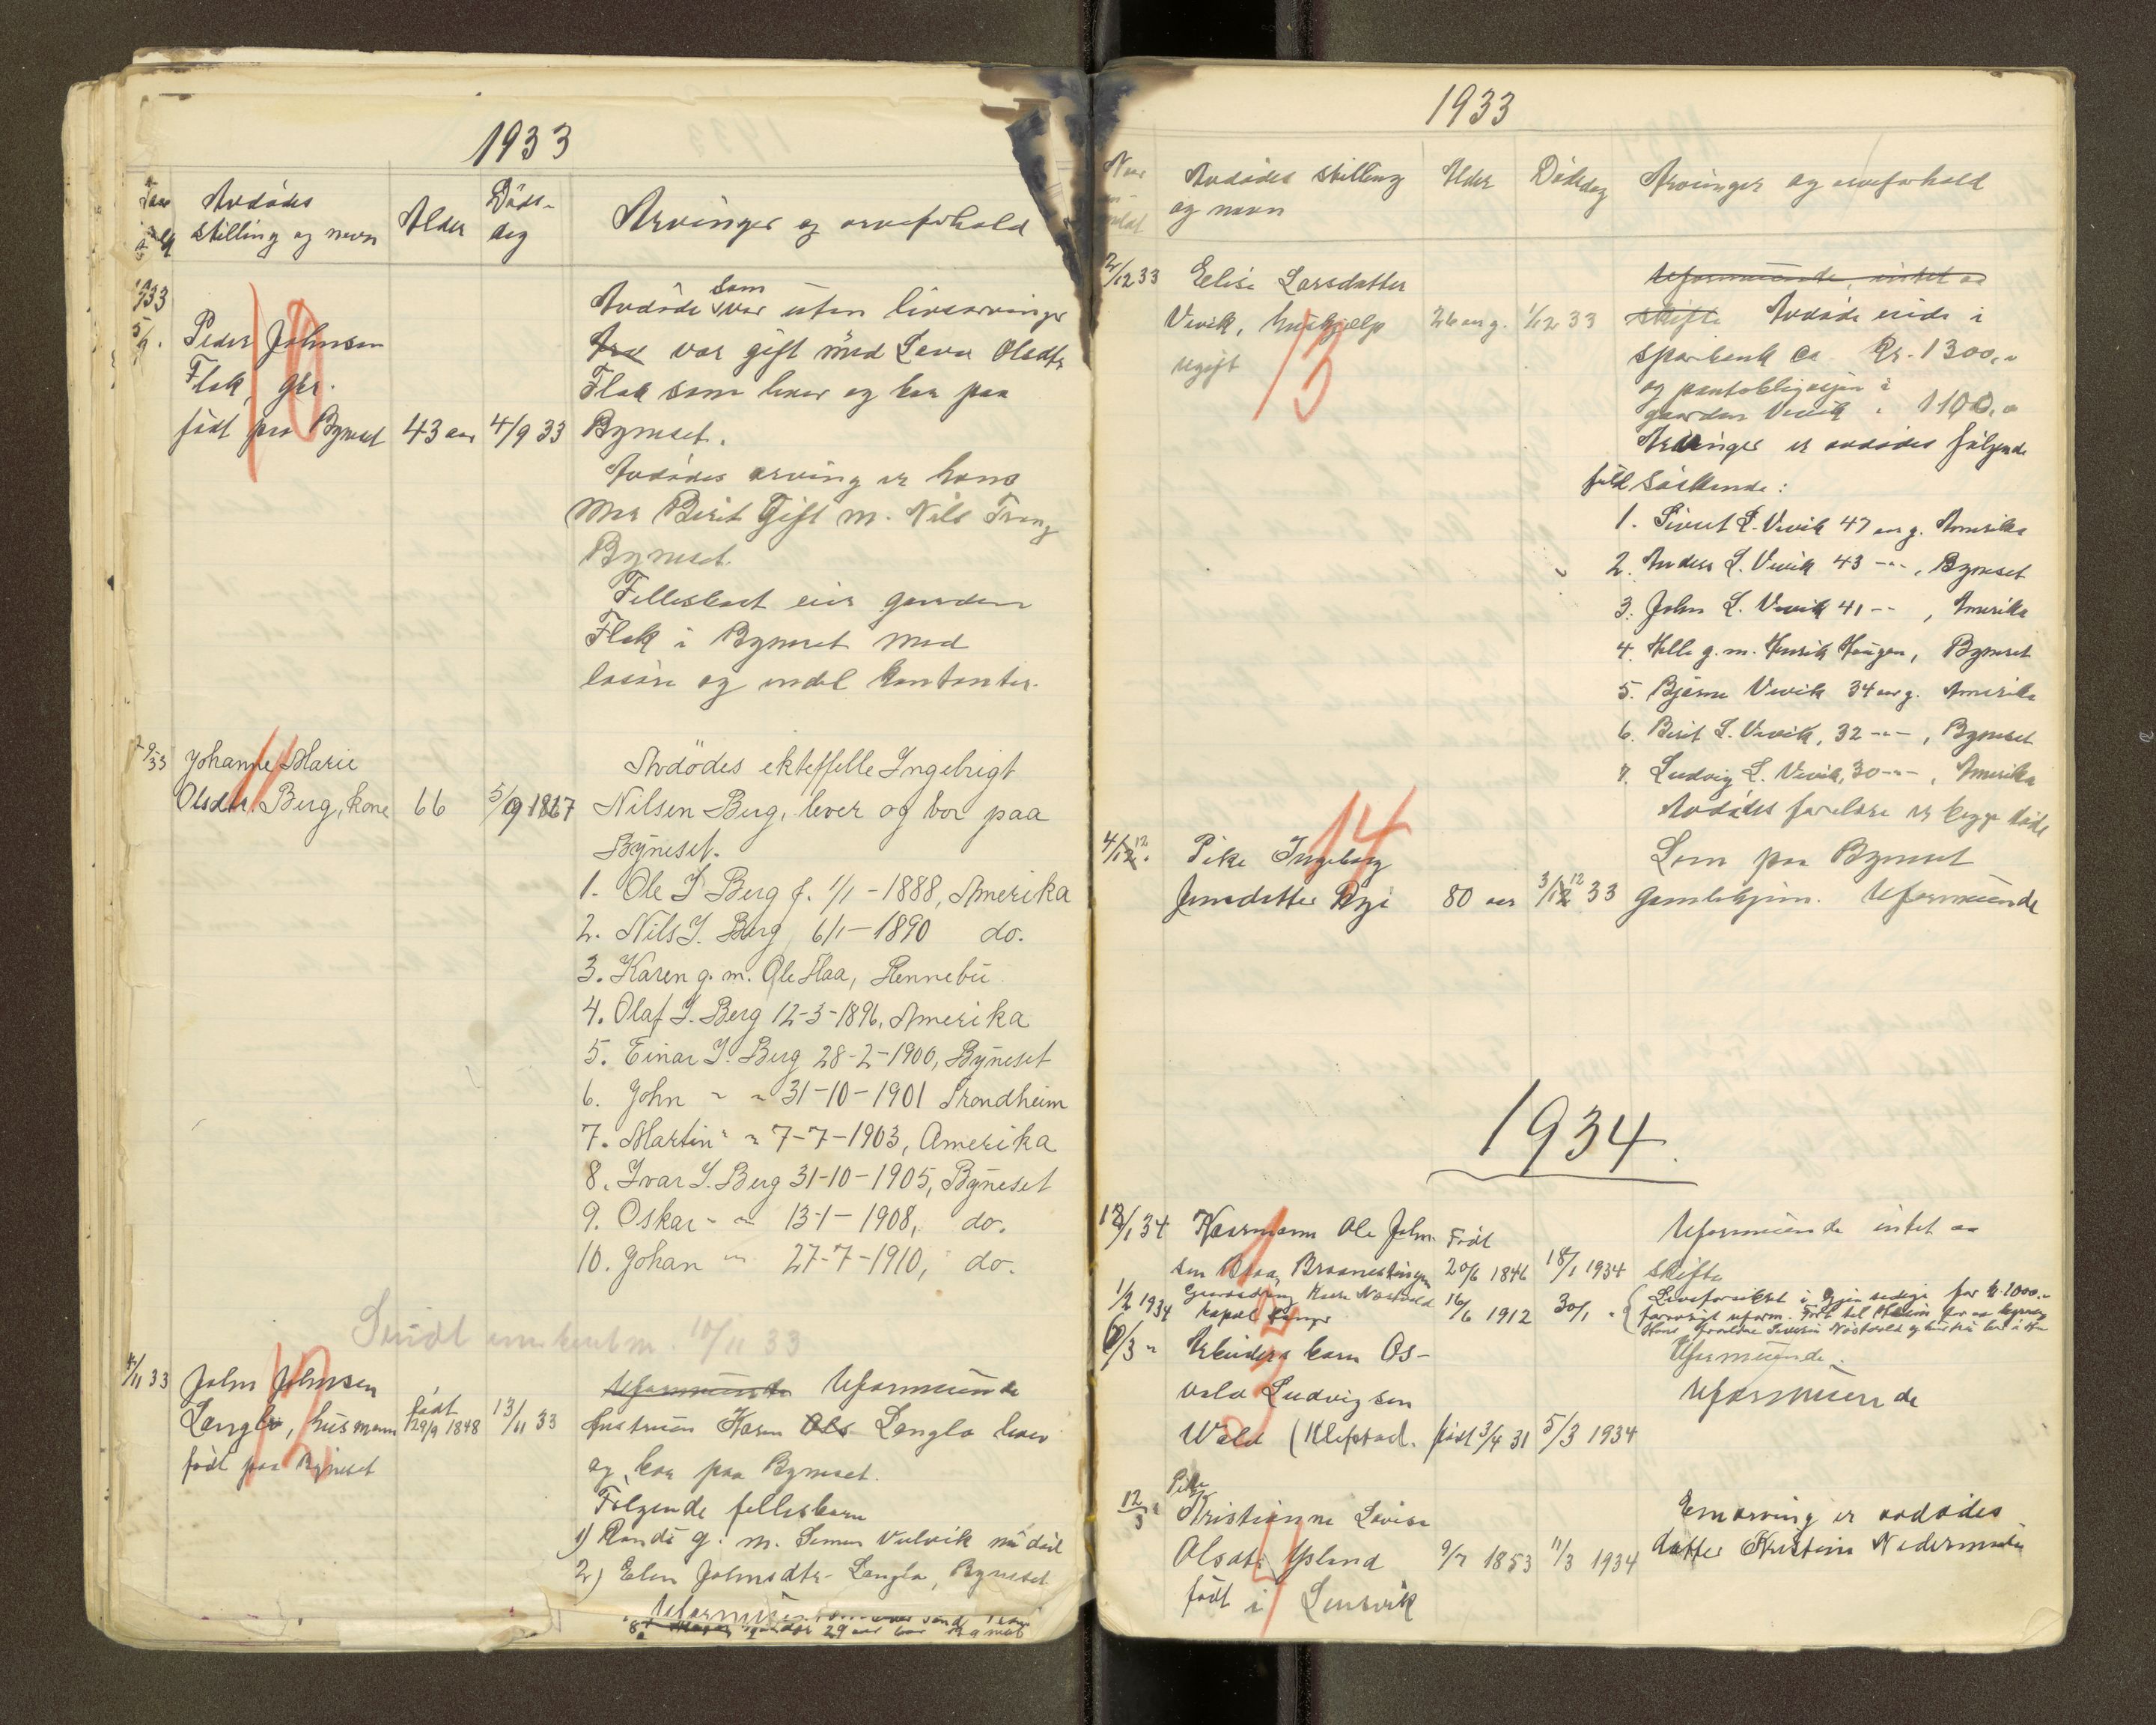 1933
Avdödes
stilling og navn
Alder
Döds-
dag
Arvinger og arveforhold
1933
5/9.
Peder Johnsen
Flak, gbr.
födt paa Bynest
43 aar
4/9 33
10
Avdöde som var uten livsarvinger
var gift med Olsdtr
Flak som lever og bor paa
Byneset.
Avdödes arving er hans
mor Berit Gift m. Nils
Byneset.
Fellesboet eier gaarden
Flak i Byneset med
lösöre og endel kontanter.
11
7/9 33
Johanne Marie
Olsdtr. Berg, kone
66
5/9 1867
Avdödes ekteffelle Ingebrigt
Nilsen Berg, lever og bor paa
Byneset.
1. Ole I Berg f. 1/1 - 1888, Amerika
2. Nils I. Berg 6/1 - 1890 do.
3. Karen g. m. Ole Haa, Rennebu
4. Olaf I. Berg 12-3-1896, Amerika
5. Einar I. Berg 28-2-1900, Byneset
6. John " " 31-10-1901 Trondheim
7. Martin " " 7-7-1903, Amerika
8. Ivar I. Berg 31-10-1905, Byneset
9. Oskar " " 13-1-1908, do.
10. Johan " 27-7-1910, do.
/11 33
12
/11 33
John Johnsen
Langlo, husmann
födt paa Byneset
födt
29/9 1848
13/11 33
Uformuende Uformuende
hustruen Karen Ols Langlo lever
og bor paa Byneset.
Fölgende fellesbarn
1) Randi g. m. Simen Vulvik nu död
2) Elen Johnsdtr. Langlo, Byneset
1933
Avdödes stilling
og navn
Alder
Dödsdag
Arvinger og arveforhold
2/12 33
Elise Larsdatter
Vevik, hushjelp
ugift
26 aar g.
1/12 33
13
Uformuende, intet aa
skifte Avdöde eiede i
sparebank ca Kr. 1300,"
og pantobligasjon i
gaarden Vevik " 1100,"
Arvinger er avdödes fölgende
full söskende:
1. Sivert L. Vevik 47 aar g. Amerika
2. Anders L. Vevik 43 -"-, Byneset
3. John L. Vevik 41 --, Amerika
4. g. m. Henrik Haugen, Byneset
5. Bjarne Vevik 34 aar g. Amerika
6. Berit L. Vevik, 32 -"-, Byneset
7. Ludvig L. Vevik, 30 -"-, Amerika
Avdödes foreldre er begge döde
4/12.
Pike Ingeborg
Jonsdatter Rye
80 aar
3/12 33
14
Lem paa Byneset
gamlehjem. Uformuende
1934.
1/1 34
Kaarmann Ole John-
sen
Födt
20/6 1846
18/1 1934
1
Uformuende intet aa
skifte
1/2 1934
16/6 1912
30/1 "
2
Livsforsikret i for kr 1000."
6/3 "
barn Os-
vald Ludvigsen
Wold (Klefstad.
födt 3/4 31
5/3 1934
3
Uformuende.
Uformuende
12/3 "
Pike
Kristianne Lovise
Olsdtr. Ysland
födt i Lensvik
9/7 1853
11/3 1934
4
Enearving er avdödes
datter Kristine